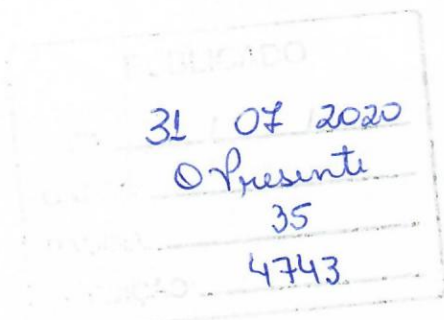 PUBLICADO
31 07 2020
O Presente
35
4743